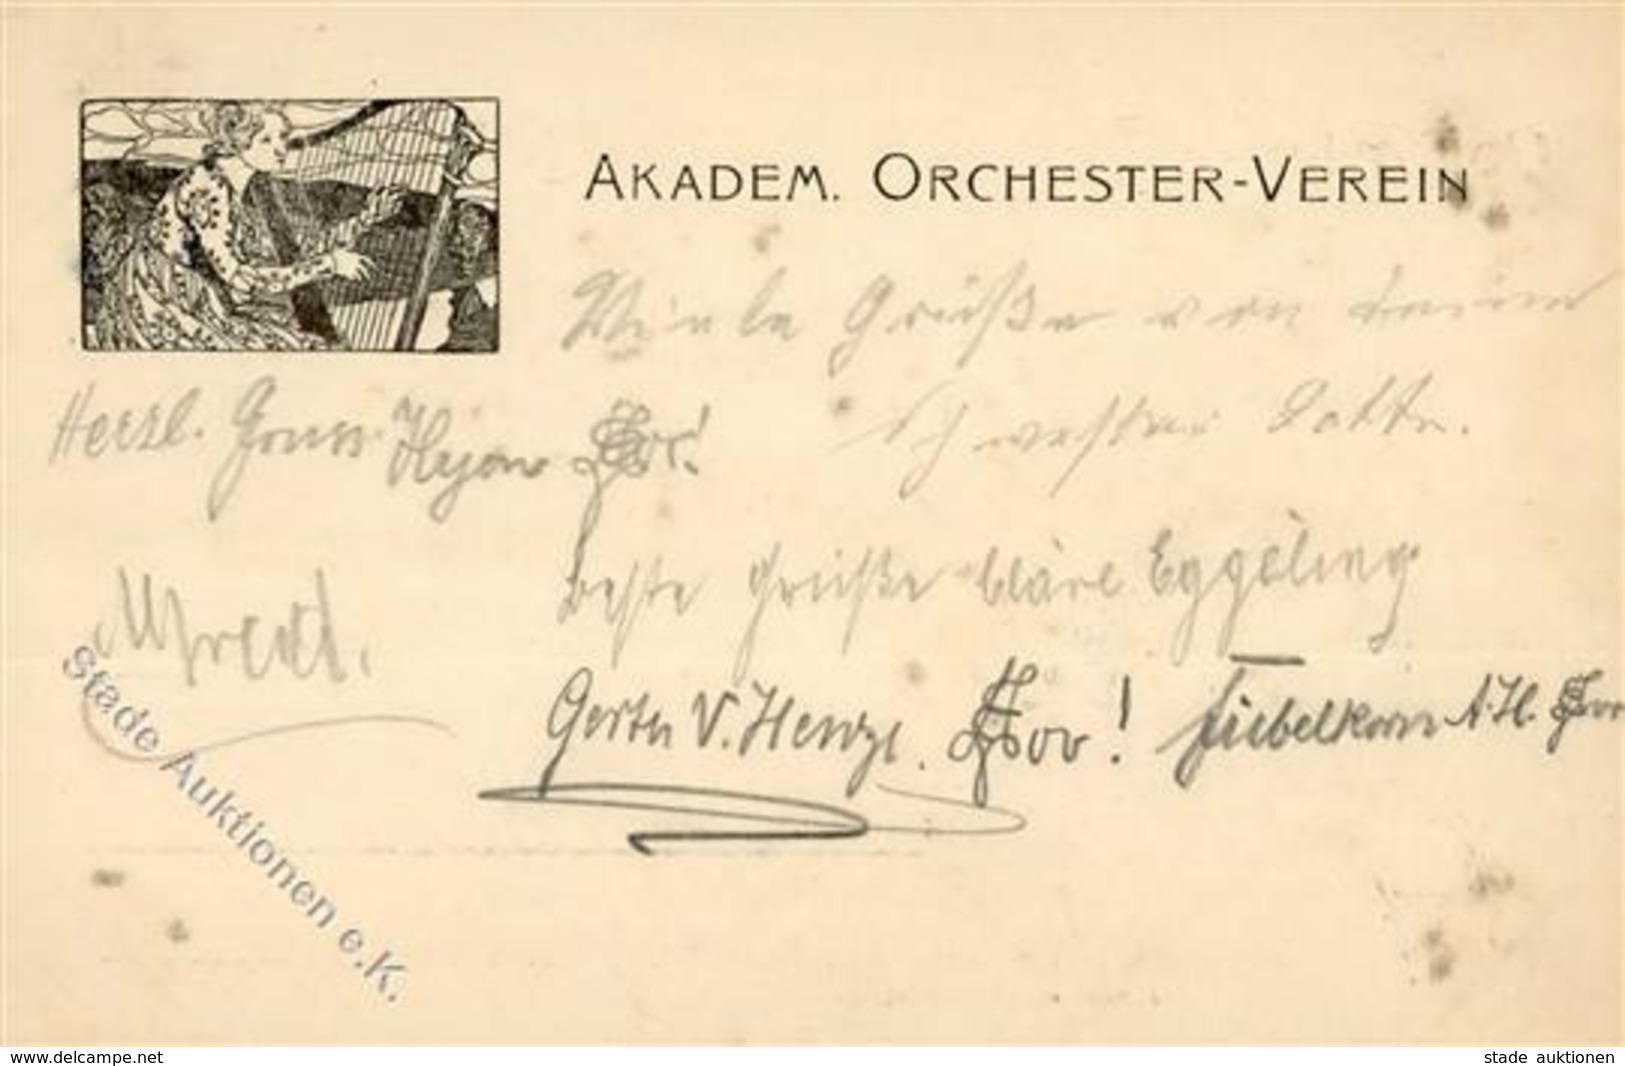 AKADEM. ORCHESTER-VEREIN
Viele Grüße von deiner
Schwester Lotte.
Herzl. Gruss
Beste Grüße Cläre Eggeling
Alfred.
V. Henze. ! Fiebelkorn A.H.
Stade Auktionen e.K.
www.delcampe.net
stade auktionen